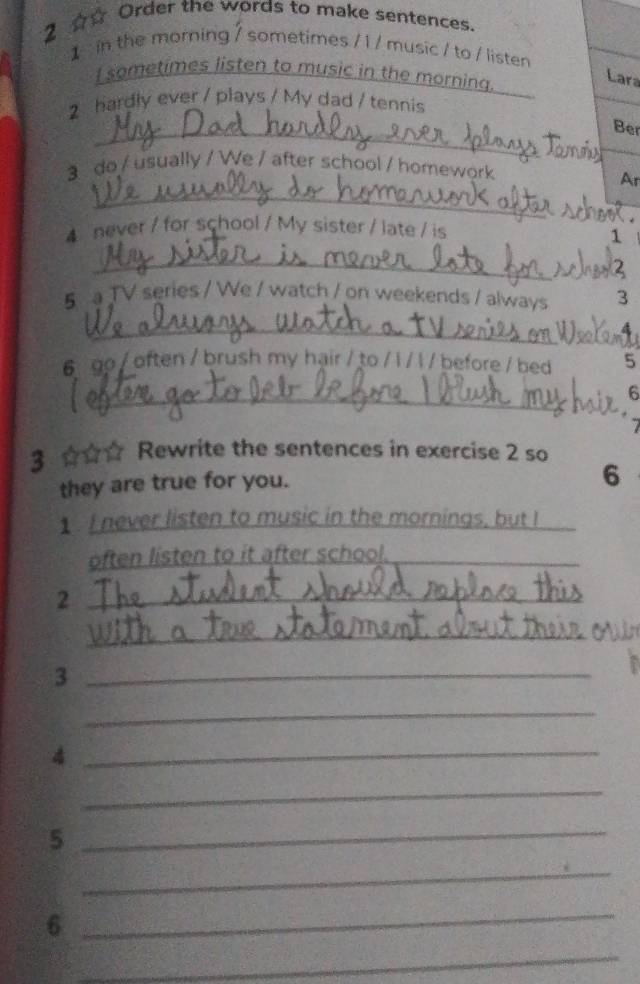 2 ☆☆ Order the words to make sentences.
1 in the morning / sometimes / I / music / to / listen
I sometimes listen to music in the morning.
2 hardly ever / plays / My dad / tennis
My Dad hardly ever plays Tennis
3 do / usually / We / after school / homework
We usually do homework after school.
4 never / for school / My sister / late / is
My sister is never late for school
5 a TV series / We / watch / on weekends / always
We always watch a TV series on
6 go / often / brush my hair / to / I / I / before / bed
I often go to before I brush my hair.
3 ☆☆☆ Rewrite the sentences in exercise 2 so
they are true for you.
1 I never listen to music in the mornings, but I
often listen to it after school.
2 The student should replace this
with a true statement about their
3
4
5
6
Lara
Ber
Ar
1
2
3
4
5
6
7
6